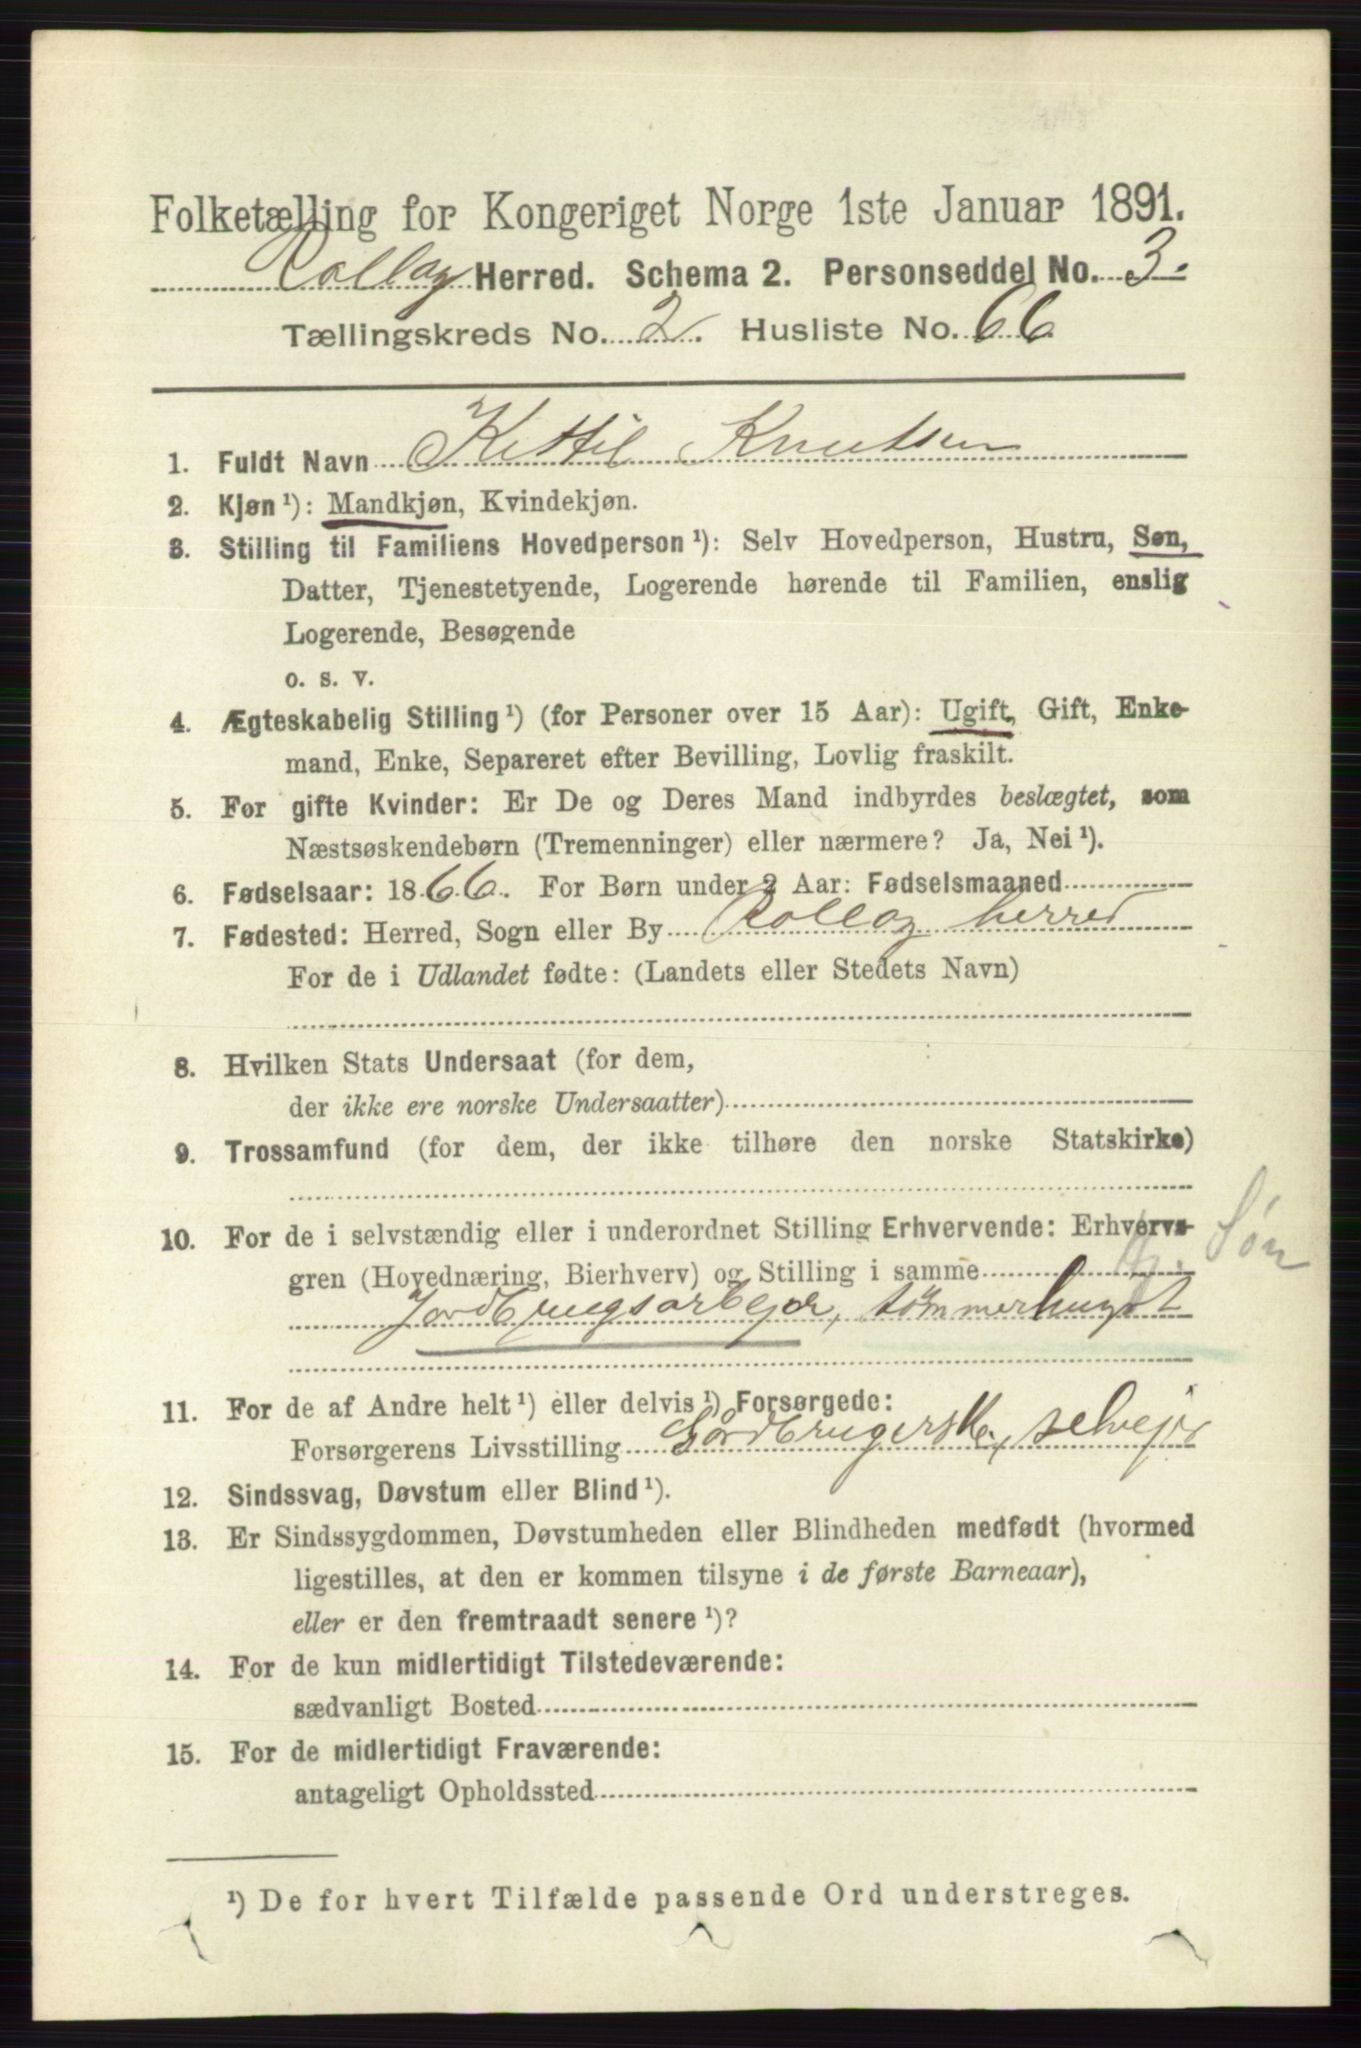 Folketælling for Kongeriget Norge 1ste Januar 1891.
Rollag Herred. Schema 2. Personseddel No. 3.
Tællingskreds No. 2. Husliste No. 66
1. Fuldt Navn Kittil Knutsen
2. Kjøn ¹): Mandkjøn, Kvindekjøn.
3. Stilling til Familiens Hovedperson ¹): Selv Hovedperson, Hustru, Søn,
Datter, Tjenestetyende, Logerende hørende til Familien, enslig
Logerende, Besøgende
o. s. v.
4. Ægteskabelig Stilling ¹) (for Personer over 15 Aar): Ugift, Gift, Enke-
mand, Enke, Separeret efter Bevilling, Lovlig fraskilt.
5. For gifte Kvinder: Er De og Deres Mand indbyrdes beslægtet, som
Næstsøskendebørn (Tremenninger) eller nærmere? Ja, Nei ¹).
6. Fødselsaar: 1866. For Børn under 2 Aar: Fødselsmaaned
7. Fødested: Herred, Sogn eller By Rollag herred
For de i Udlandet fødte: (Landets eller Stedets Navn)
8. Hvilken Stats Undersaat (for dem,
der ikke ere norske Undersaatter)
9. Trossamfund (for dem, der ikke tilhøre den norske Statskirke)
10. For de i selvstændig eller i underordnet Stilling Erhvervende: Erhvervs-
gren (Hovednæring, Bierhverv) og Stilling i samme
Søn
Jordbrugsarbejder, tømmerhugst
11. For de af Andre helt ¹) eller delvis ¹) Forsørgede:
Forsørgerens Livsstilling Gårdbrugerske, selvejer
12. Sindssvag, Døvstum eller Blind ¹).
13. Er Sindssygdommen, Døvstumheden eller Blindheden medfødt (hvormed
ligestilles, at den er kommen tilsyne i de første Barneaar),
eller er den fremtraadt senere ¹)?
14. For de kun midlertidigt Tilstedeværende:
sædvanligt Bosted
15. For de midlertidigt Fraværende:
antageligt Opholdssted
¹) De for hvert Tilfælde passende Ord understreges.